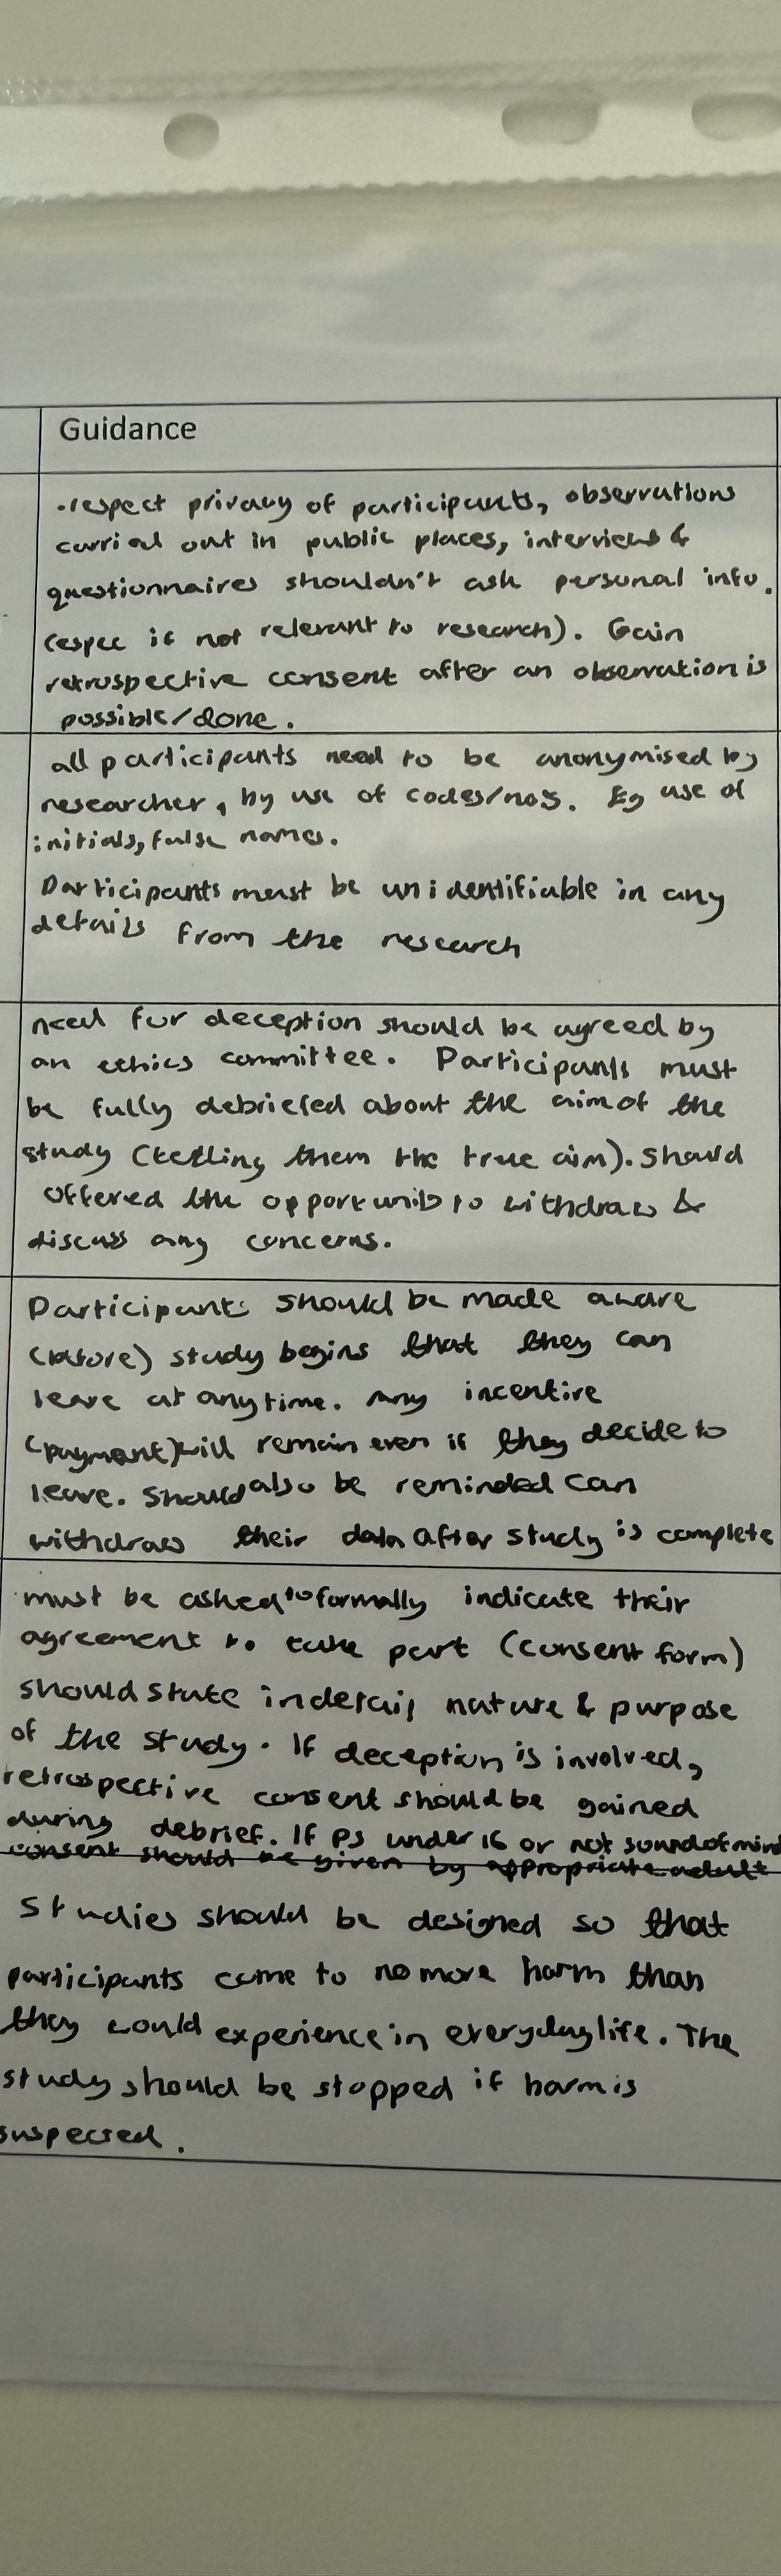 Guidance
.respect privacy of participants, observations
carried out in public places, interviews &
questionnaires shouldn't ask personal info.
(espec if not relevant to research). Gain
retrospective consent after an observation is
possible/done.
all participants need to be anonymised by
researcher, by use of codes/nos. Eg use of
initials, false names.
Participants must be unidentifiable in any
details from the research
need for deception should be agreed by
an ethics committee. Participants must
be fully debriefed about the aim of the
study (telling them the true aim). Should
offered the opportunity to withdraw &
discuss any concerns.
Participants should be made aware
(before) study begins that they can
leave at any time. Any incentive
(payment) will remain even if they decide to
leave. Should also be reminded can
withdraw their data after study is complete
must be asked to formally indicate their
agreement to take part (consent form)
should state in detail nature & purpose
of the study. If deception is involved,
retrospective consent should be gained
during debrief. If Ps under 16 or not sound of mind
consent should be given by appropriate adult
Studies should be designed so that
participants come to no more harm than
they would experience in everyday life. The
study should be stopped if harm is
suspected.